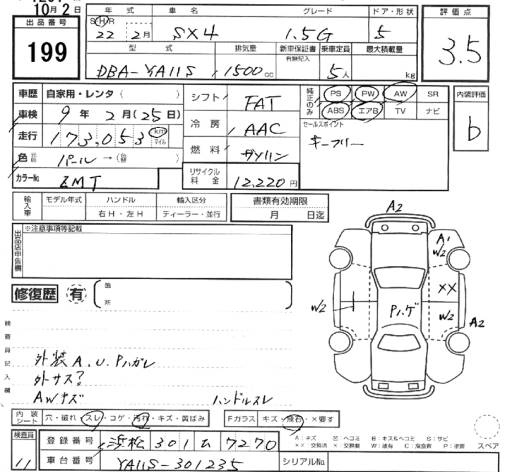 10月2日
出品番号
199
年式 車名 グレード ドア・形状
S H R
22年 2月 SX4 1.5G 5
型式 排気量 新車保証書 乗車定員 最大積載量
有無記入
DBA-YA11S 1500cc 5人 kg
評価点
3.5
車歴 自家用・レンタ( )
車検 9年2月(25日)
走行 173,053 km マイル
色 パール→(替 )
カラーNo ZMT
シフト FAT
冷房 AAC
燃料 ガソリン
リサイクル料金 12,220円
純正のみ PS PW AW SR
ABS エアB TV ナビ
セールスポイント
キーフリー
内装評価
b
輸入車 モデル年式 ハンドル 輸入区分
年 右H・左H ディーラー・並行
書類有効期限
月 日迄
出品店申告欄
※注意事項等記載
修復歴 有
箇所
検査員記入欄
外装A.U.Pハガレ
外サス?
AWキズ
ハンドルスレ
A2
A1
W2
XX
W2
W2
Pハゲ
A2
内装シート 穴・破れ・スレ・コゲ・汚れ・キズ・黄ばみ
Fガラス キズ・飛石・×要す
A:キズ U:ヘコミ B:キズ&ヘコミ S:サビ
スペア
検査員
11
登録番号 浜松301ム7270
車台番号 YA11S-301235
シリアルNo